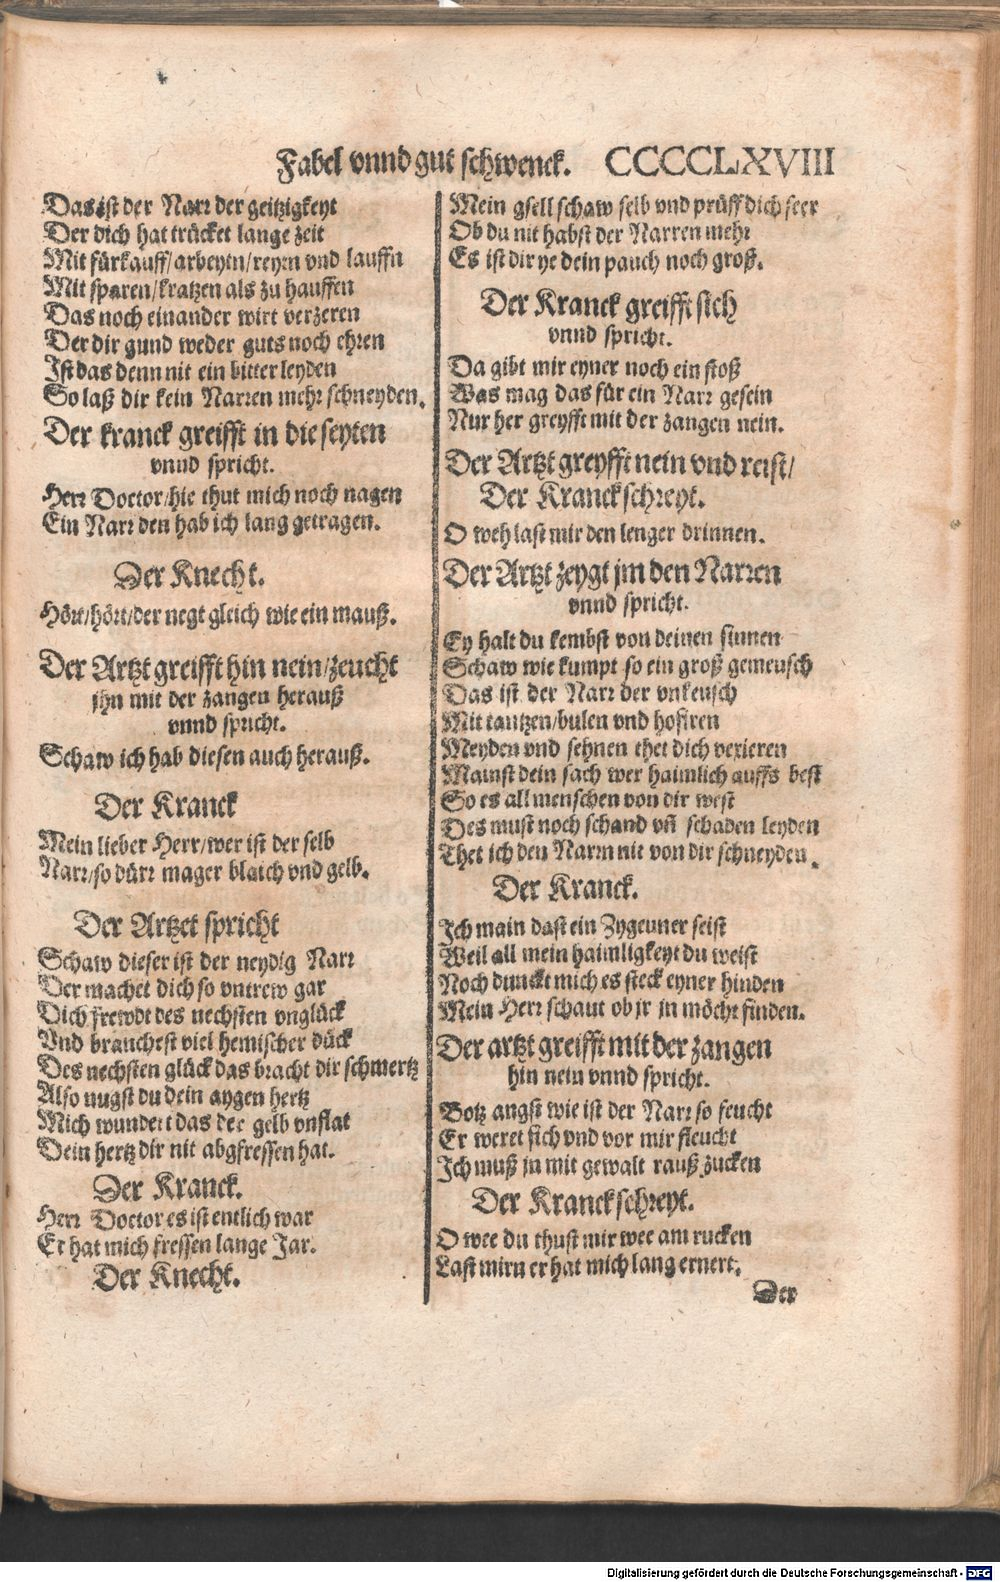 Fabel vnnd gut schwenck. CCCCCLXVIII
Das ist der Narr der geitzigkeyt
Der dich hat trücket lange zeit
Mit fürkauff/arbeytn/reytn vnd lauffn
Mit sparen/kratzen als zu hauffen
Das noch einander wirt verzeren
Der dir gund weder guts noch ehren
Ist das denn nit ein bitter leyden
So laß dir kein Narren mehr schneyden.
Der kranck greifft in die seyten
vnnd spricht.
Herr Doctor/hie thut mich noch nagen
Ein Narr den hab ich lang getragen.
Der Knecht.
Hört/hört/der negt gleich wie ein mauß.
Der Artzt greifft hin nein/zeucht
jhn mit der zangen herauß
vnnd spricht.
Schaw ich hab diesen auch herauß.
Der Kranck
Mein lieber Herr/wer ist der selb
Narr/so dürr mager blaich vnd gelb.
Der Artzet spricht
Schaw dieser ist der neydig Narr
Der machet dich so vntrew gar
Dich frewdt des nechsten vnglück
Vnd brauchest viel hemischer dück
Des nechsten glück das bracht dir schmertz
Also nugst du dein aygen hertz
Mich wundert das der gelb vnflat
Dein hertz dir nit abgfressen hat.
Der Kranck.
Herr Doctor es ist entlich war
Er hat mich fressen lange Jar.
Der Knecht.
Mein gsell schaw selb vnd prüff dich seer
Ob du nit habst der Narren mehr
Es ist dir ye dein pauch noch groß.
Der Kranck greifft sich
vnnd spricht.
Da gibt mir eyner noch ein stoß
Was mag das für ein Narr gesein
Nur her greyfft mit der zangen nein.
Der Artzt greyfft nein vnd reist/
Der Kranck schreyt.
O weh last mir den lenger drinnen.
Der Artzt zeygt jm den Narren
vnnd spricht.
Ey halt du kembst von deinen sinnen
Schaw wie kumpt so ein groß gemeusch
Das ist der Narr der vnkeusch
Mit tantzen/bulen vnd hofiren
Meyden vnd sehnen thet dich vexieren
Mainst dein sach wer haimlich auffs best
So es all menschen von dir west
Des must noch schand vñ schaden leyden
Thet ich den Narrn nit von dir schneyden.
Der Kranck.
Ich main dast ein Zygeuner seist
Weil all mein haimligkeyt du weist
Noch dunckt mich es steck eyner hinden
Mein Herr schaut ob jr jn möcht finden.
Der artzt greifft mit der zangen
hin nein vnnd spricht.
Botz angst wie ist der Narr so feucht
Er weret sich vnd vor mir fleucht
Ich muß jn mit gewalt rauß zucken
Der Kranck schreyt.
O wee du thust mir wee am rucken
Last mirn er hat mich lang ernert.
Der
Digitalisierung gefördert durch die Deutsche Forschungsgemeinschaft - DFG